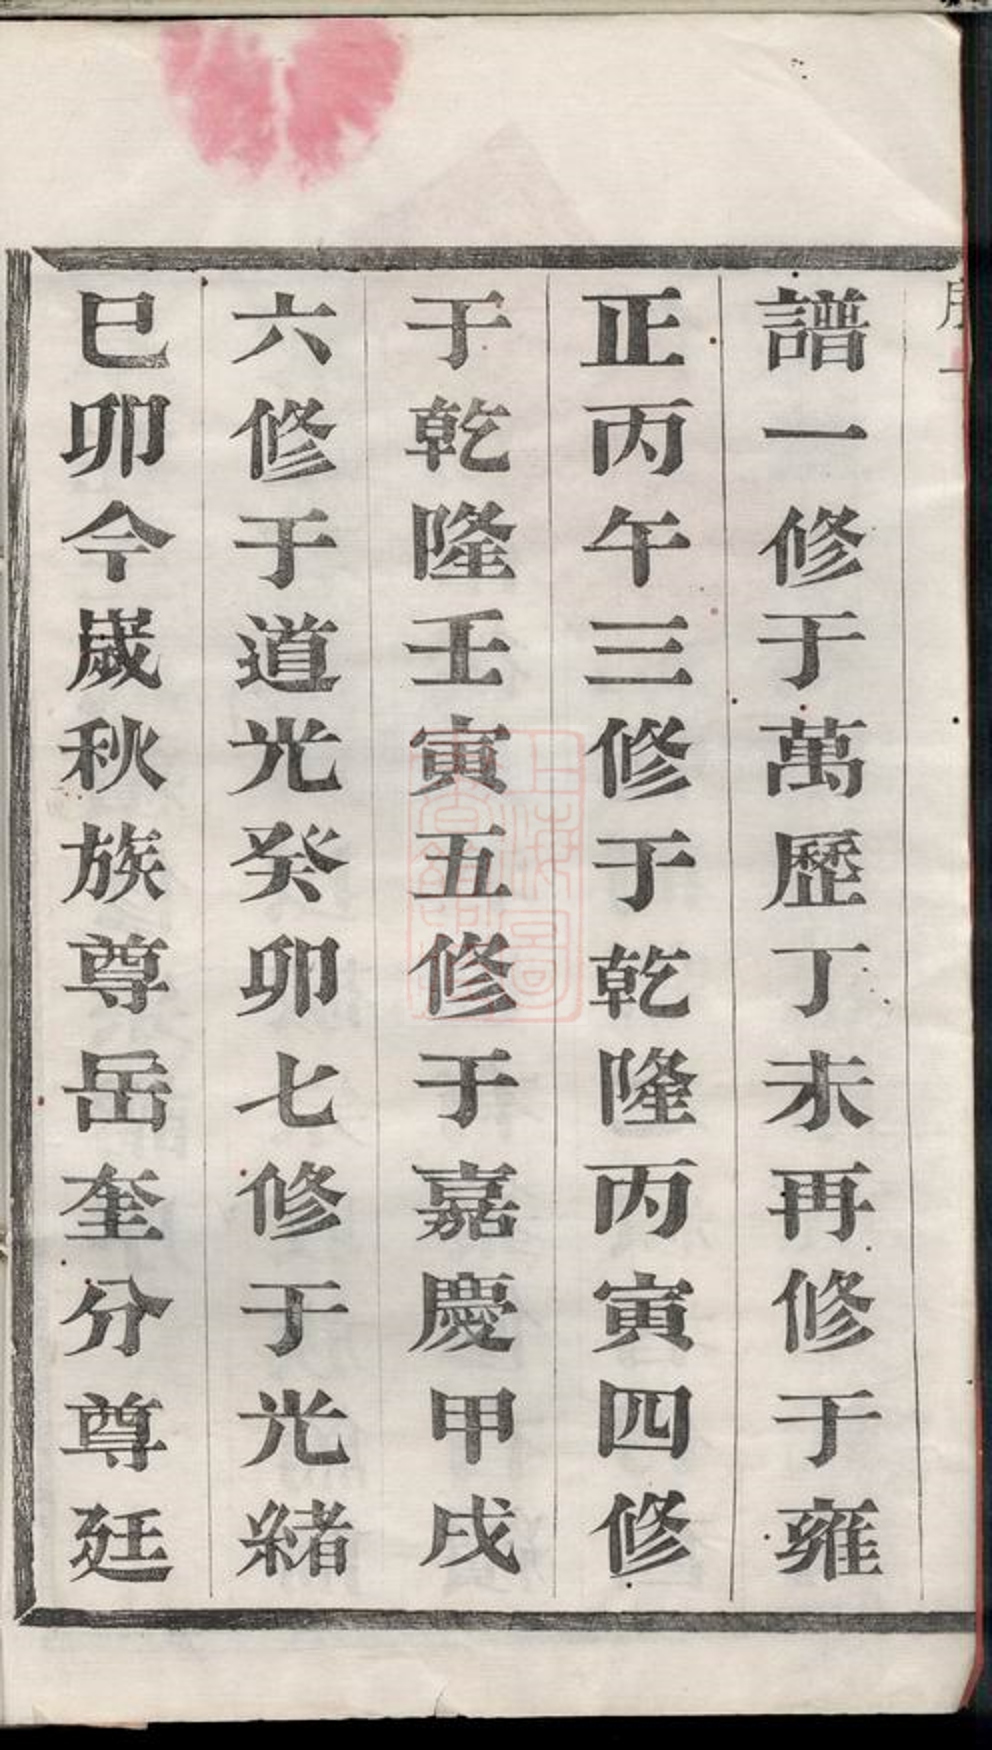 譜一修于萬歷丁未再修于雍
正丙午三修于乾隆丙寅四修
于乾隆壬寅五修于嘉慶甲戌
六修于道光癸卯七修于光緒
巳卯今嵗秋族尊岳奎分尊廷
上海圖書館藏